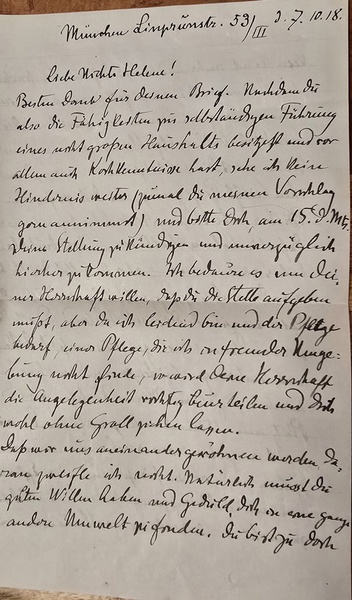 München Linprunstr. 53/III d. 7.10.18.
Liebe Nichte Helene!
Besten Dank für Deinen Brief. Nachdem Du
also die Fähigkeiten zur selbständigen Führung
eines nicht großen Haushalts besitzst und vor
allem auch Kochkenntnisse hast, sehe ich kein
Hindernis weiter (zumal Du meinen Vorschlag
gern annimmst) und bitte Dich, am 15. d. Mts.
Deine Stellung zu kündigen und unverzüglich
hierher zu kommen. Ich bedaure es um Dei-
ner Herrschaft willen, daß Du die Stelle aufgeben
mußt, aber da ich leidend bin und der Pflege
bedarf, einer Pflege, die ich in fremder Umge-
bung nicht finde, so wird Deine Herrschaft
die Angelegenheit richtig beurteilen und Dich
wohl ohne Groll ziehen lassen.
Daß wir uns aneinander gewöhnen werden, da-
ran zweifle ich nicht. Natürlich mußt Du
guten Willen haben und Geduld, Dich in eine ganz
andere Umwelt zu finden. Du bist ja doch